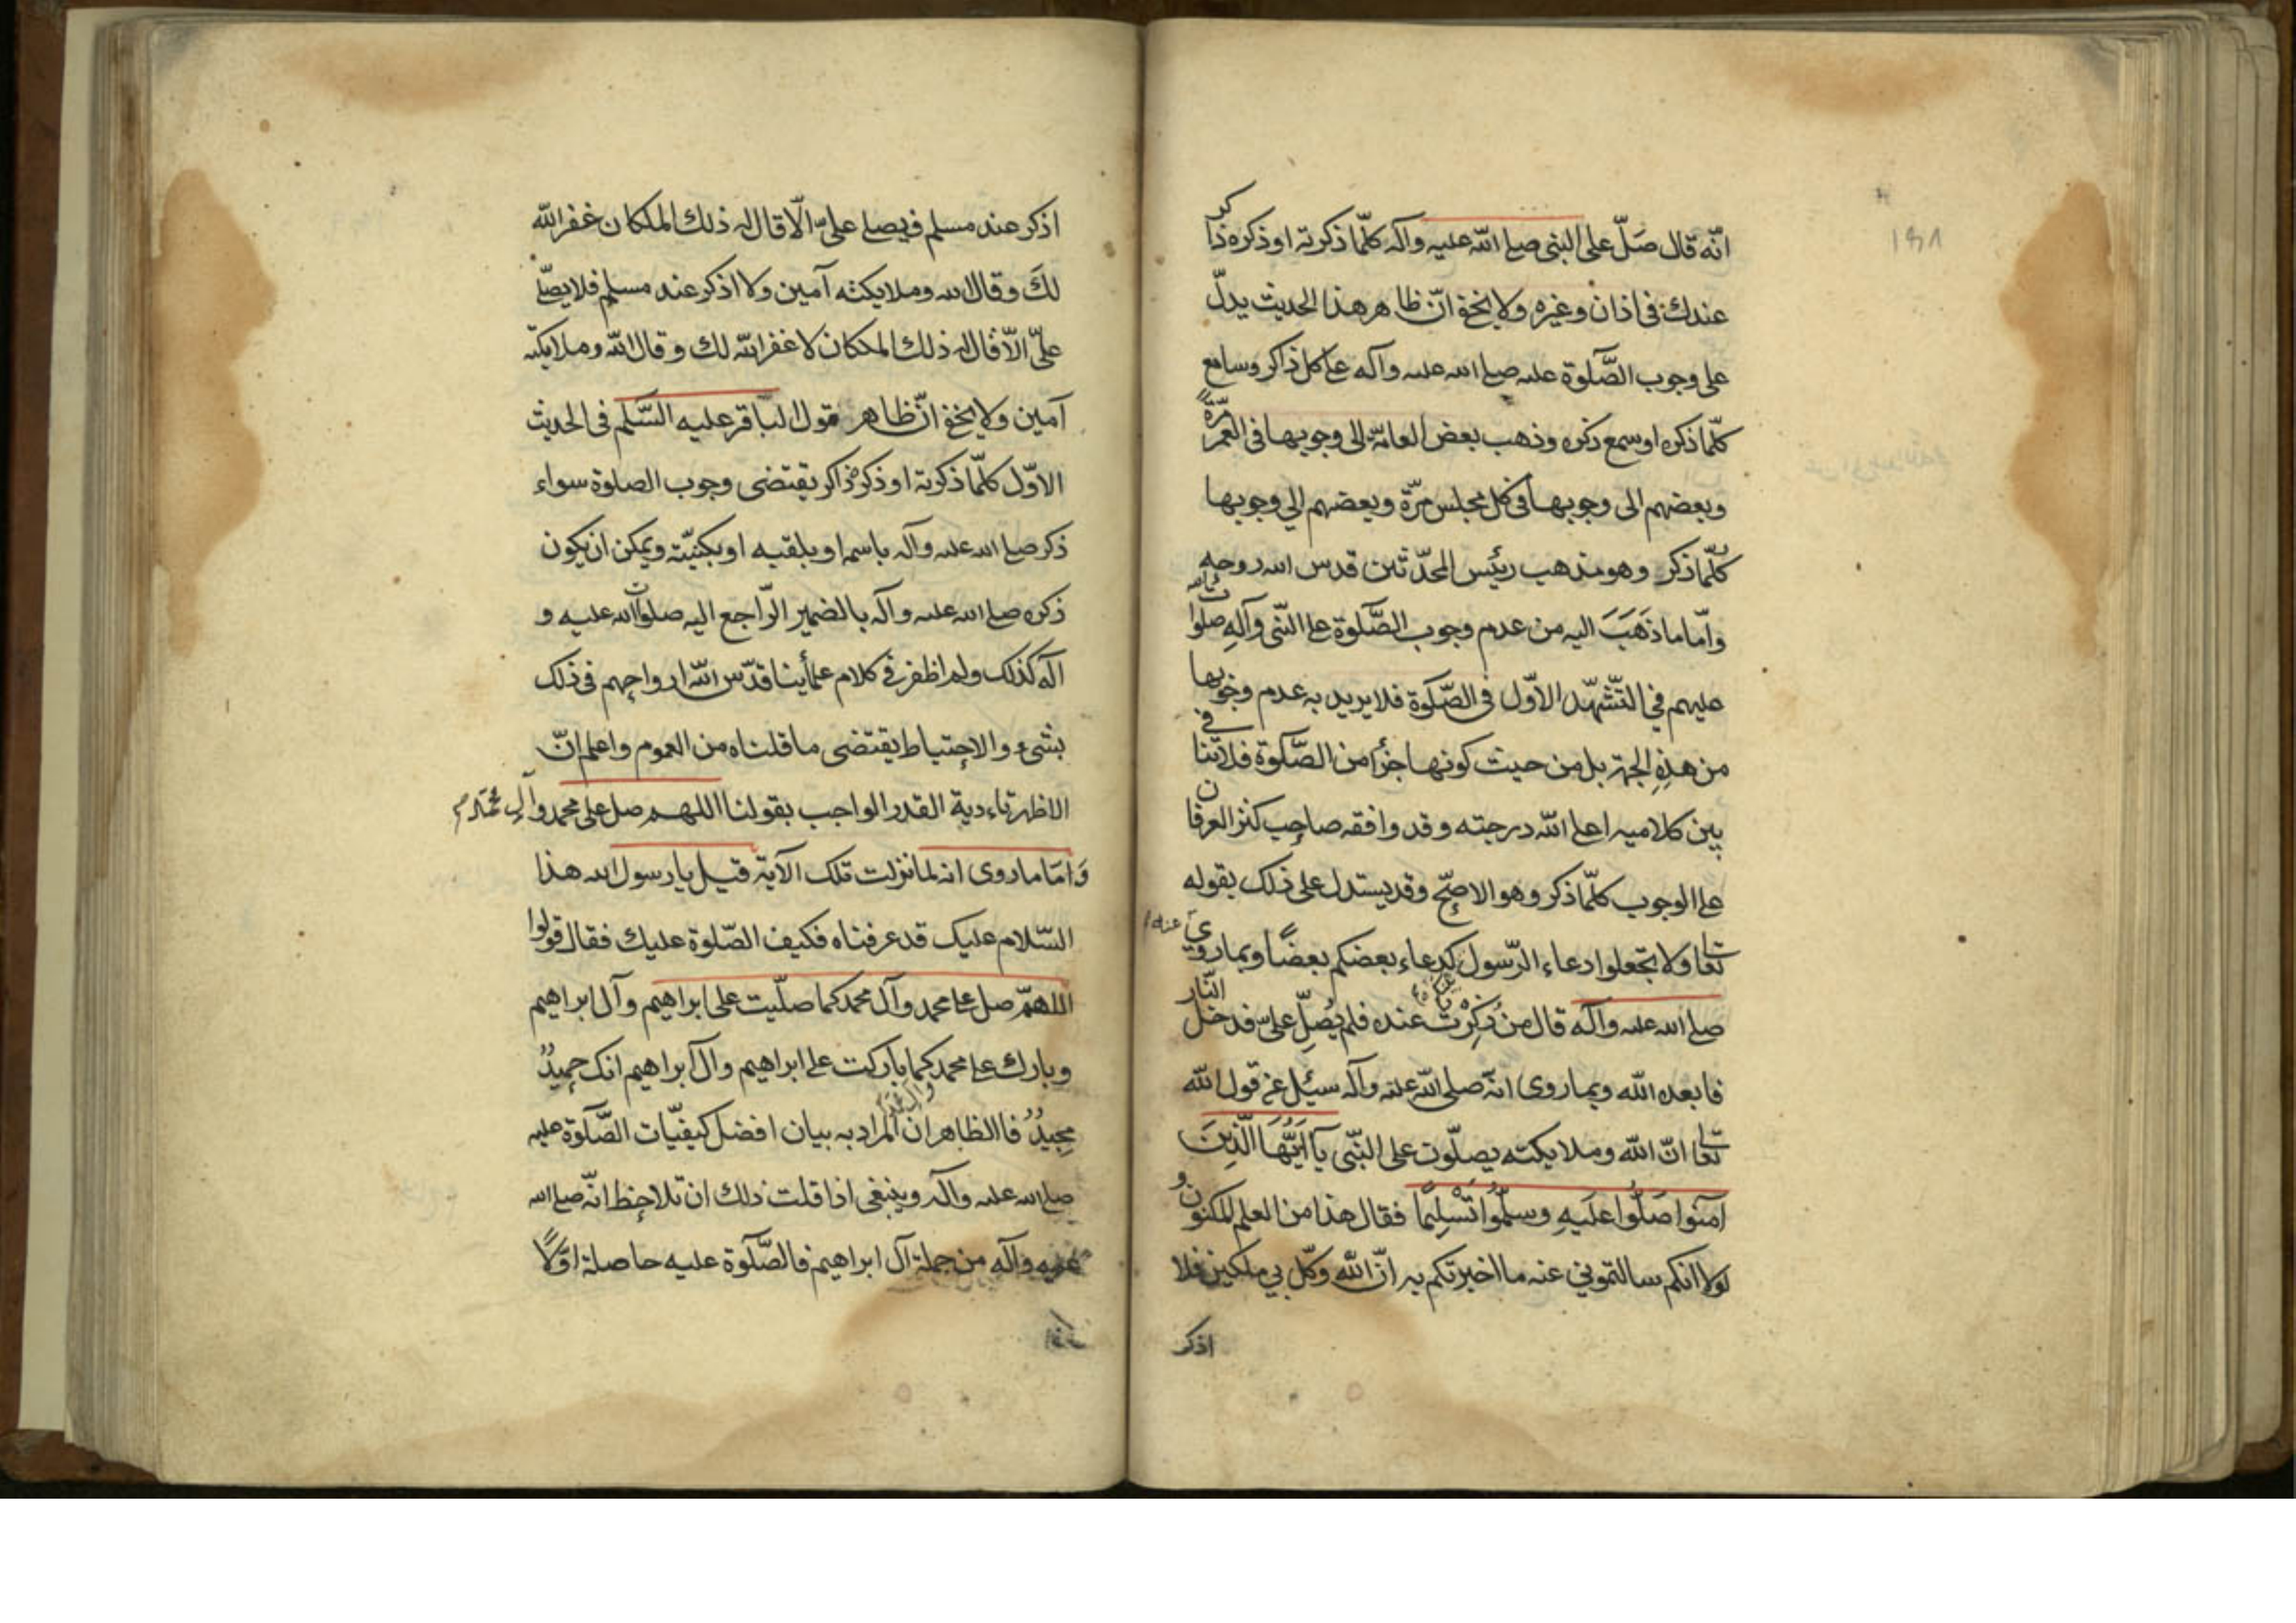 انّه قال صَلّ على النبى صلى الله عليه وآله كلّما ذكرته او ذكره ذاكر
عندك فى اذان وغيره ولا يخفى انّ ظاهر هذا الحديث يدلّ
على وجوب الصَّلوة عليه صلى الله عليه وآله على كل ذاكر وسامع
كلّما ذكره او سمع ذكره وذهب بعض العامّة الى وجوبها فى العمر مرّةً
وبعضهم الى وجوبها فى كل مجلس مرّة وبعضهم الى وجوبها
كُلّما ذكر وهو مذهب رئيس المحدّثين قدس الله روحه
وامّا ما ذَهَبَ اليه من عدم وجوب الصَّلوة على النّبى وآلِهِ صلوات الله
عليهم في التّشهّد الاوّل فى الصَّلوة فلا يريد به عدم وجوبها
من هذِهِ الجهة بل من حيث كونها جزأ من الصَّلوة فلا تنافى
بين كلاميه اعلى الله درجته وقد وافقه صاحب كنز العرفان
على الوجوب كلّما ذكر وهو الاصحّ وقد يستدل على ذلك بقوله
تعالى ولا تجعلوا دعاء الرّسول كدعاء بعضكم بعضًا وبما روى عنه
صلى الله عليه وآله قال من ذُكِرْتُ عنده فلم يُصلِّ علىّ فدخل النّار
فابعده الله وبما روى انّه صلى الله عليه وآله سئل عن قول الله
تعالى انّ الله وملايكته يصلّون على النبّى يَآ اَيُّهَا الَّذِينَ
آمنوا صَلُّوا عليهِ وسلّموا تَسْلِيمًا فقال هذا من العلم المكنون و
لولا انكم سالتموني عنه ما اخبرتكم به انّ الله وكّل بي ملكين فلا
اذكر
اذكر عند مسلم فيصلى علىّ الّا قال له ذلك الملكان غفر الله
لكَ وقال الله وملايكته آمين ولا اذكر عند مسلم فلا يصلّى
علىّ الّا قال له ذلك الملكان لا غفر الله لك وقال الله وملايكته
آمين ولا يخفى انّ ظاهر قول الباقر عليه السَّلم فى الحديث
الاوّل كلّما ذكرته او ذكره ذاكر يقتضى وجوب الصلوة سواء
ذكر صلى الله عليه وآله باسمه او بلقبه او بكنيّته ويمكن ان يكون
ذكره صلى الله عليه وآله بالضمير الرّاجع اليه صلوات الله عليه و
آله كذلك ولم اظفر في كلام علمأينا قدّس الله ارواحهم فى ذلك
بشىء والاحتياط يقتضى ما قلناه من العموم واعلم انّ
الاظهر تاءدية القدر الواجب بقولنا اللهم صل على محمد وآلِ محمّد
وَامّا ما روى انه لما نزلت تلك الآية قيل يا رسول الله هذا
السّلام عليك قد عرفناه فكيف الصّلوة عليك فقال قولوا
اللهمّ صل على محمد وآل محمد كما صلّيت على ابراهيم وآل ابراهيم
وبارك على محمد وآل محمد كما باركت على ابراهيم وآل ابراهيم انك حميدٌ
مجيدٌ فالظاهر ان المراد به بيان افضل كيفيّات الصَّلوة عليه
صلى الله عليه وآله وينبغى اذا قلت ذلك ان تلاحظ انّه صلى الله
عليه وآله من جملة آل ابراهيم فالصَّلوة عليه حاصلة اوّلًا